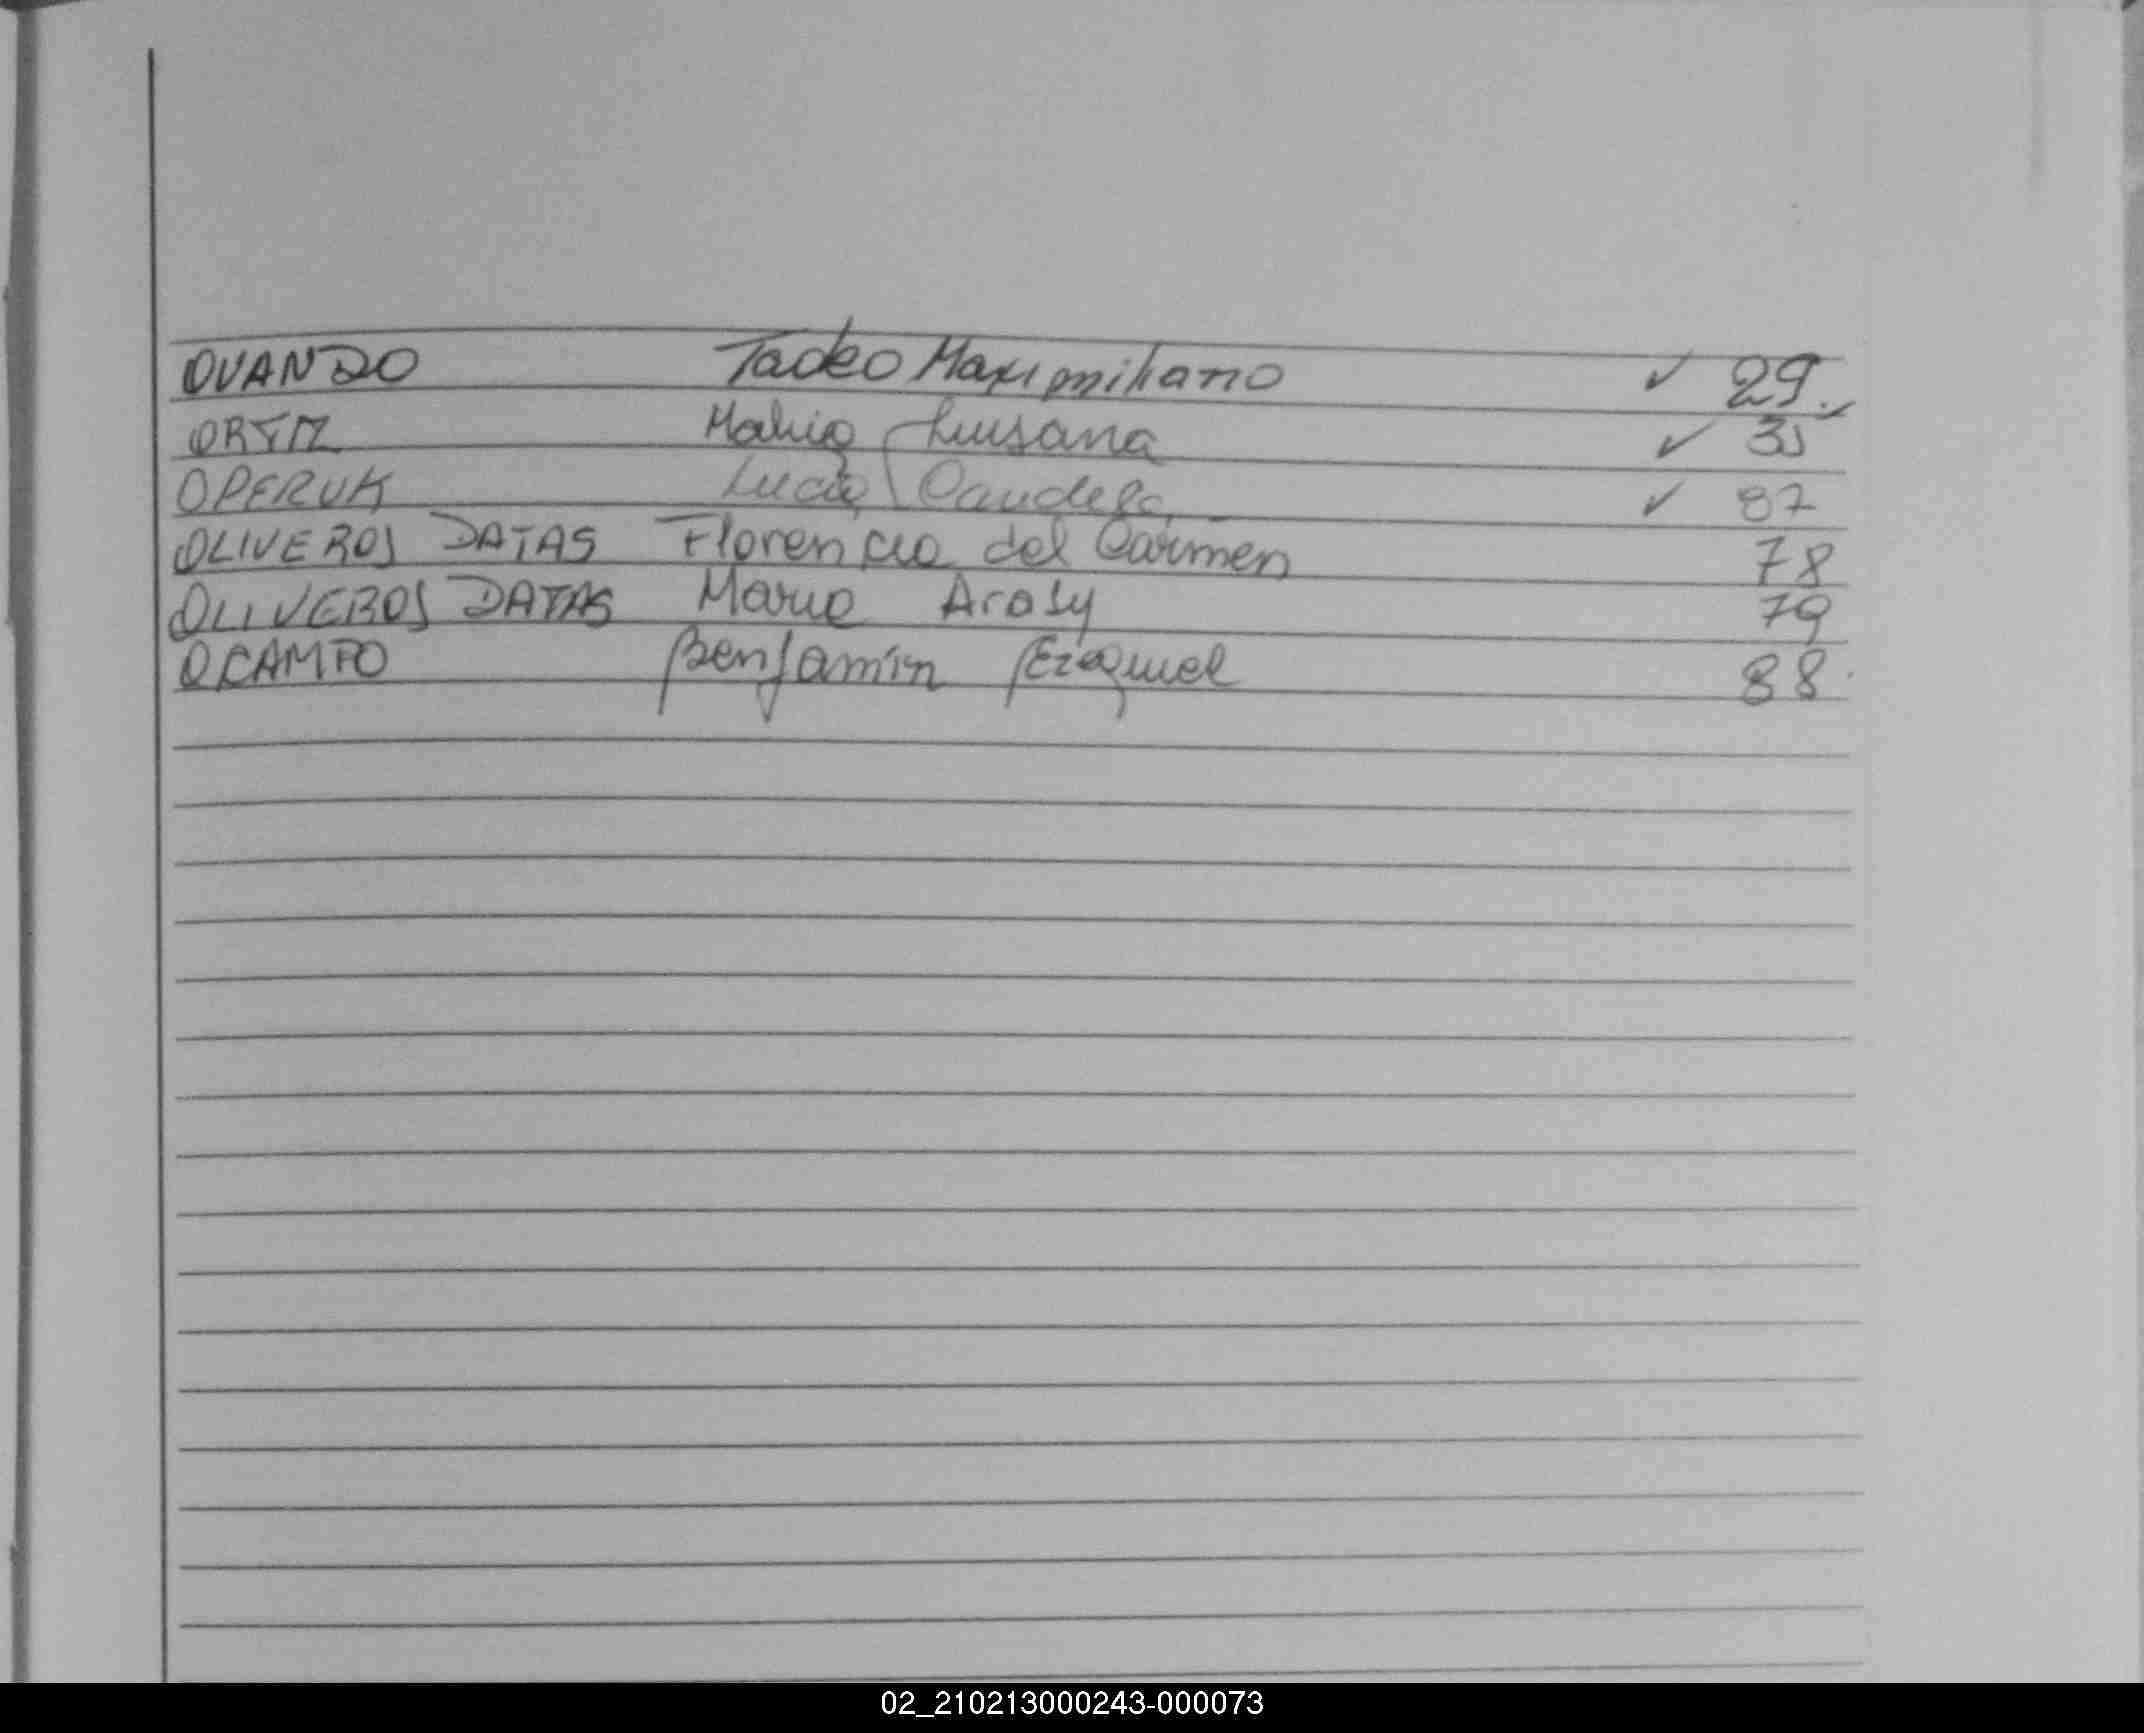 OVANDO Tadeo Maximiliano ✓ 29.
ORTIZ María Luisana ✓ 35
OPERUK Lucía Candela ✓ 87
OLIVEROS DATAS Florencia del Carmen 78
OLIVEROS DATAS María Araly 79
OCAMPO Benjamín Ezequiel 88
02_210213000243-000073